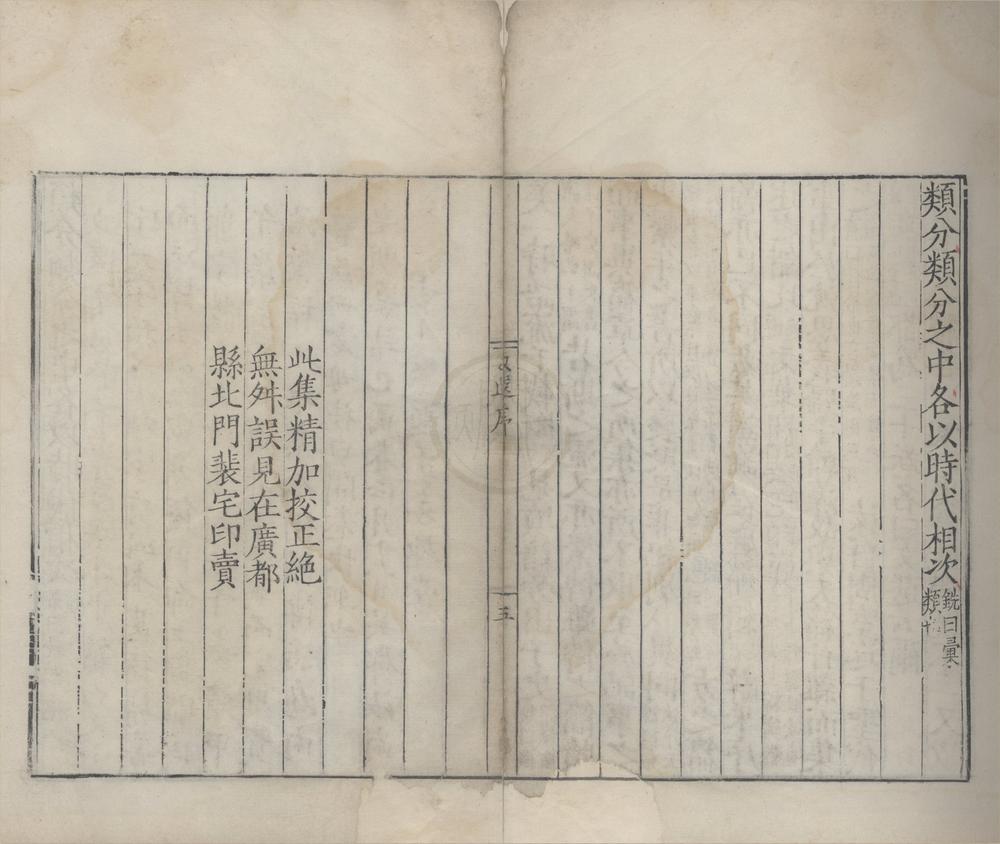 類分類分之中各以時代相次銑曰彙
類也
文選序
五
此集精加挍正絕
無舛誤見在廣都
縣北門裴宅印賣